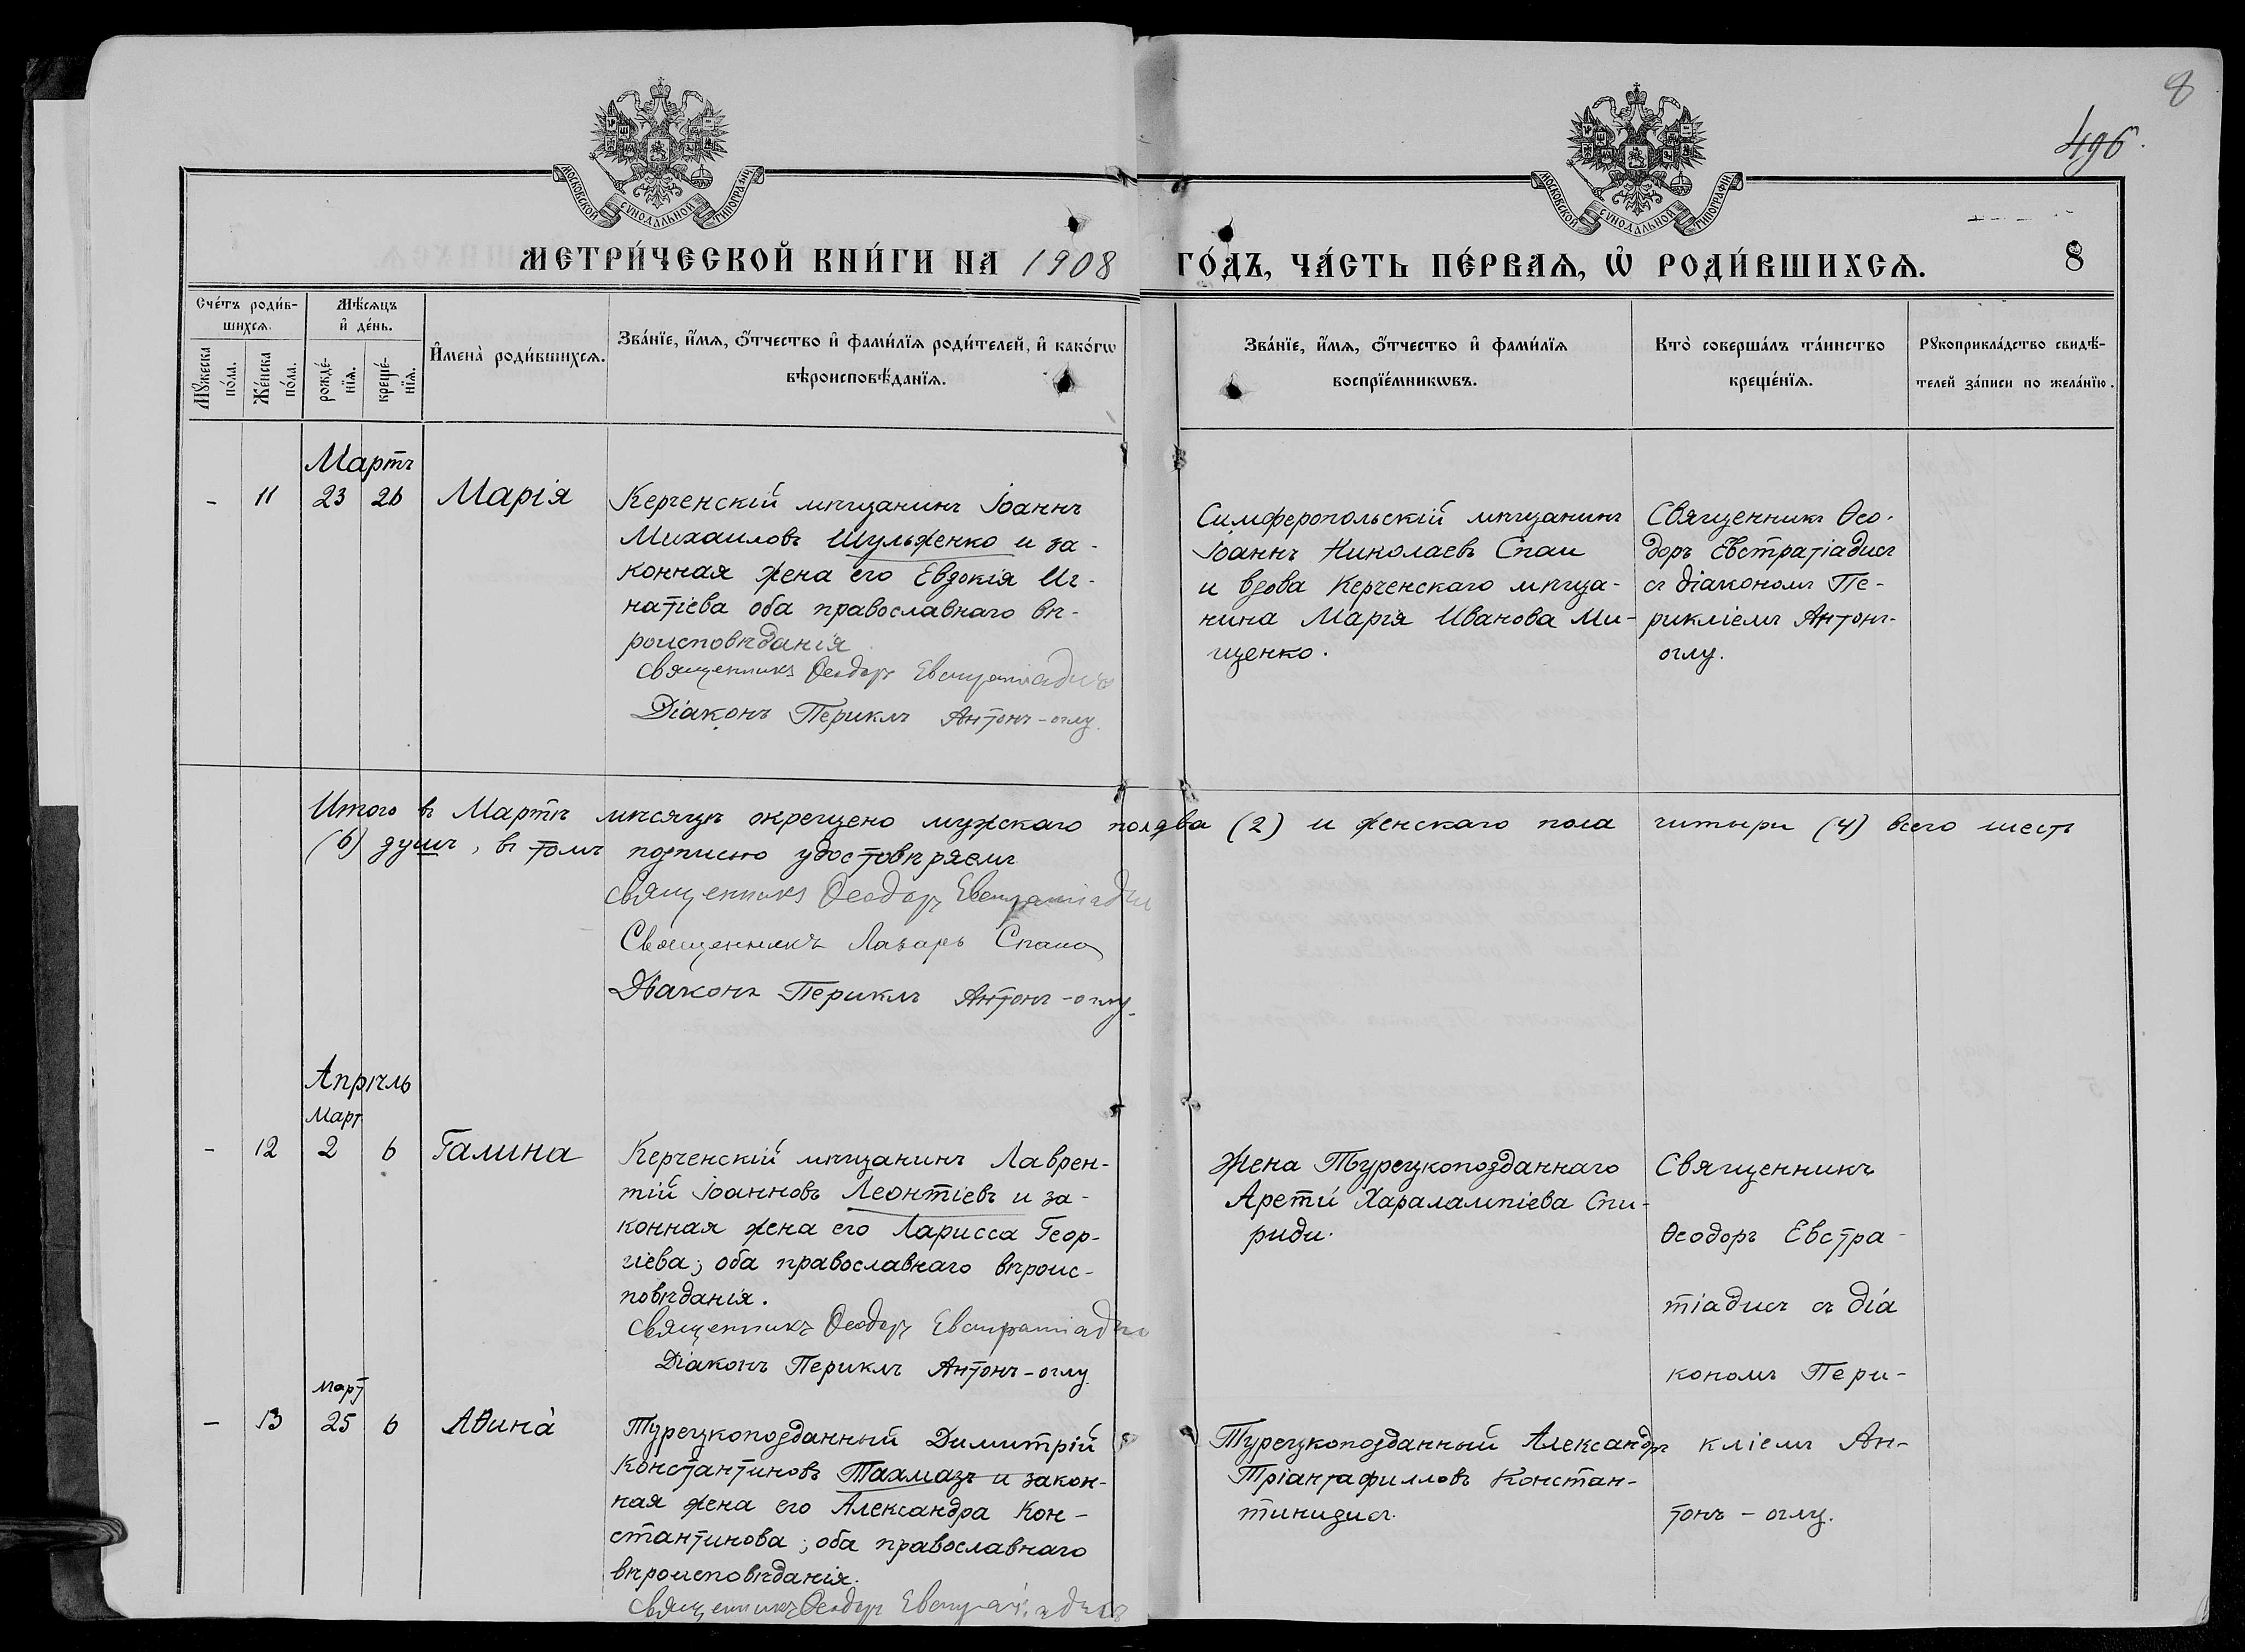 8
496.
МОСКОВСКОЙ СѴНОДАЛЬНОЙ ТИПОГРАФІИ
МОСКОВСКОЙ СѴНОДАЛЬНОЙ ТИПОГРАФІИ
МЕТРИ́ЧЕСКОЙ КНИ́ГИ НА 1908
ГО́ДЪ, ЧА́СТЬ ПЕ́РВАѦ, Ѡ҆ РОДИ́ВШИХСѦ.
8
Сче́тъ роди́в-
шихсѧ.
Мꙋжеска
по́ла.
Же́нска
по́ла.
Мѣ́сѧцъ
и҆ де́нь.
рожде́-
нїѧ.
креще́-
нїѧ.
И҆мена̀ роди́вшихсѧ.
Зва́нїе, и҆́мѧ, ѻ҆́тчество и҆ фами́лїѧ роди́телей, и҆ како́гѡ
вѣроисповѣ́данїѧ.
Зва́нїе, и҆́мѧ, ѻ҆́тчество и҆ фами́лїѧ
воспрїе́мникѡвъ.
Кто̀ соверша́лъ та́инство
креще́нїѧ.
Рꙋкоприкла́дство свидѣ́-
телей за́писи по жела́нїю.
Мартъ
- 11 23 26 Марія
Керченскій мѣщанинъ Іоаннъ
Михаиловъ Шульженко и за-
конная жена его Евдокія Иг-
натіева оба православнаго вѣ-
роисповѣданія.
Священникъ Ѳеодоръ Евстратіадисъ
Діаконъ Периклъ Антонъ-оглу.
Симферопольскій мѣщанинъ
Іоаннъ Николаевъ Спаи
и вдова Керченскаго мѣща-
нина Марія Иванова Ми-
щенко.
Священникъ Ѳео-
доръ Евстратіадисъ
съ діакономъ Пе-
рикліемъ Антонъ-
оглу.
Итого въ Мартѣ мѣсяцѣ окрещено мужскаго пола два (2) и женскаго пола читыри (4) всего шесть
(6) душъ, въ томъ подписью удостовѣряемъ
Священникъ Ѳеодоръ Евстратіадис
Священникъ Лазарь Спаио
Діаконъ Периклъ Антонъ-оглу.
Апрѣль
Март
- 12 2 6 Галина
Керченскій мѣщанинъ Лаврен-
тій Іоанновъ Леонтіевъ и за-
конная жена его Ларисса Геор-
гіева; оба православнаго вѣроис-
повѣданія.
Священникъ Ѳеодоръ Евстратіадис
Діаконъ Периклъ Антонъ-оглу.
Жена Турецкоподданнаго
Арети Харалампіева Спи-
риди.
Священникъ
Ѳеодоръ Евстра-
тіадисъ съ діа
кономъ Пери-
кліемъ Ан-
тонъ-оглу.
март
- 13 25 6 Аѳина̀
Турецкоподданный Димитрій
Константиновъ Тахмазъ и закон-
ная жена его Александра Кон-
стантинова; оба православнаго
вѣроисповѣданія.
Священникъ Ѳеодоръ Евстратіадисъ
Турецкоподданный Александръ
Тріантафилловъ Констан-
тинидисъ.